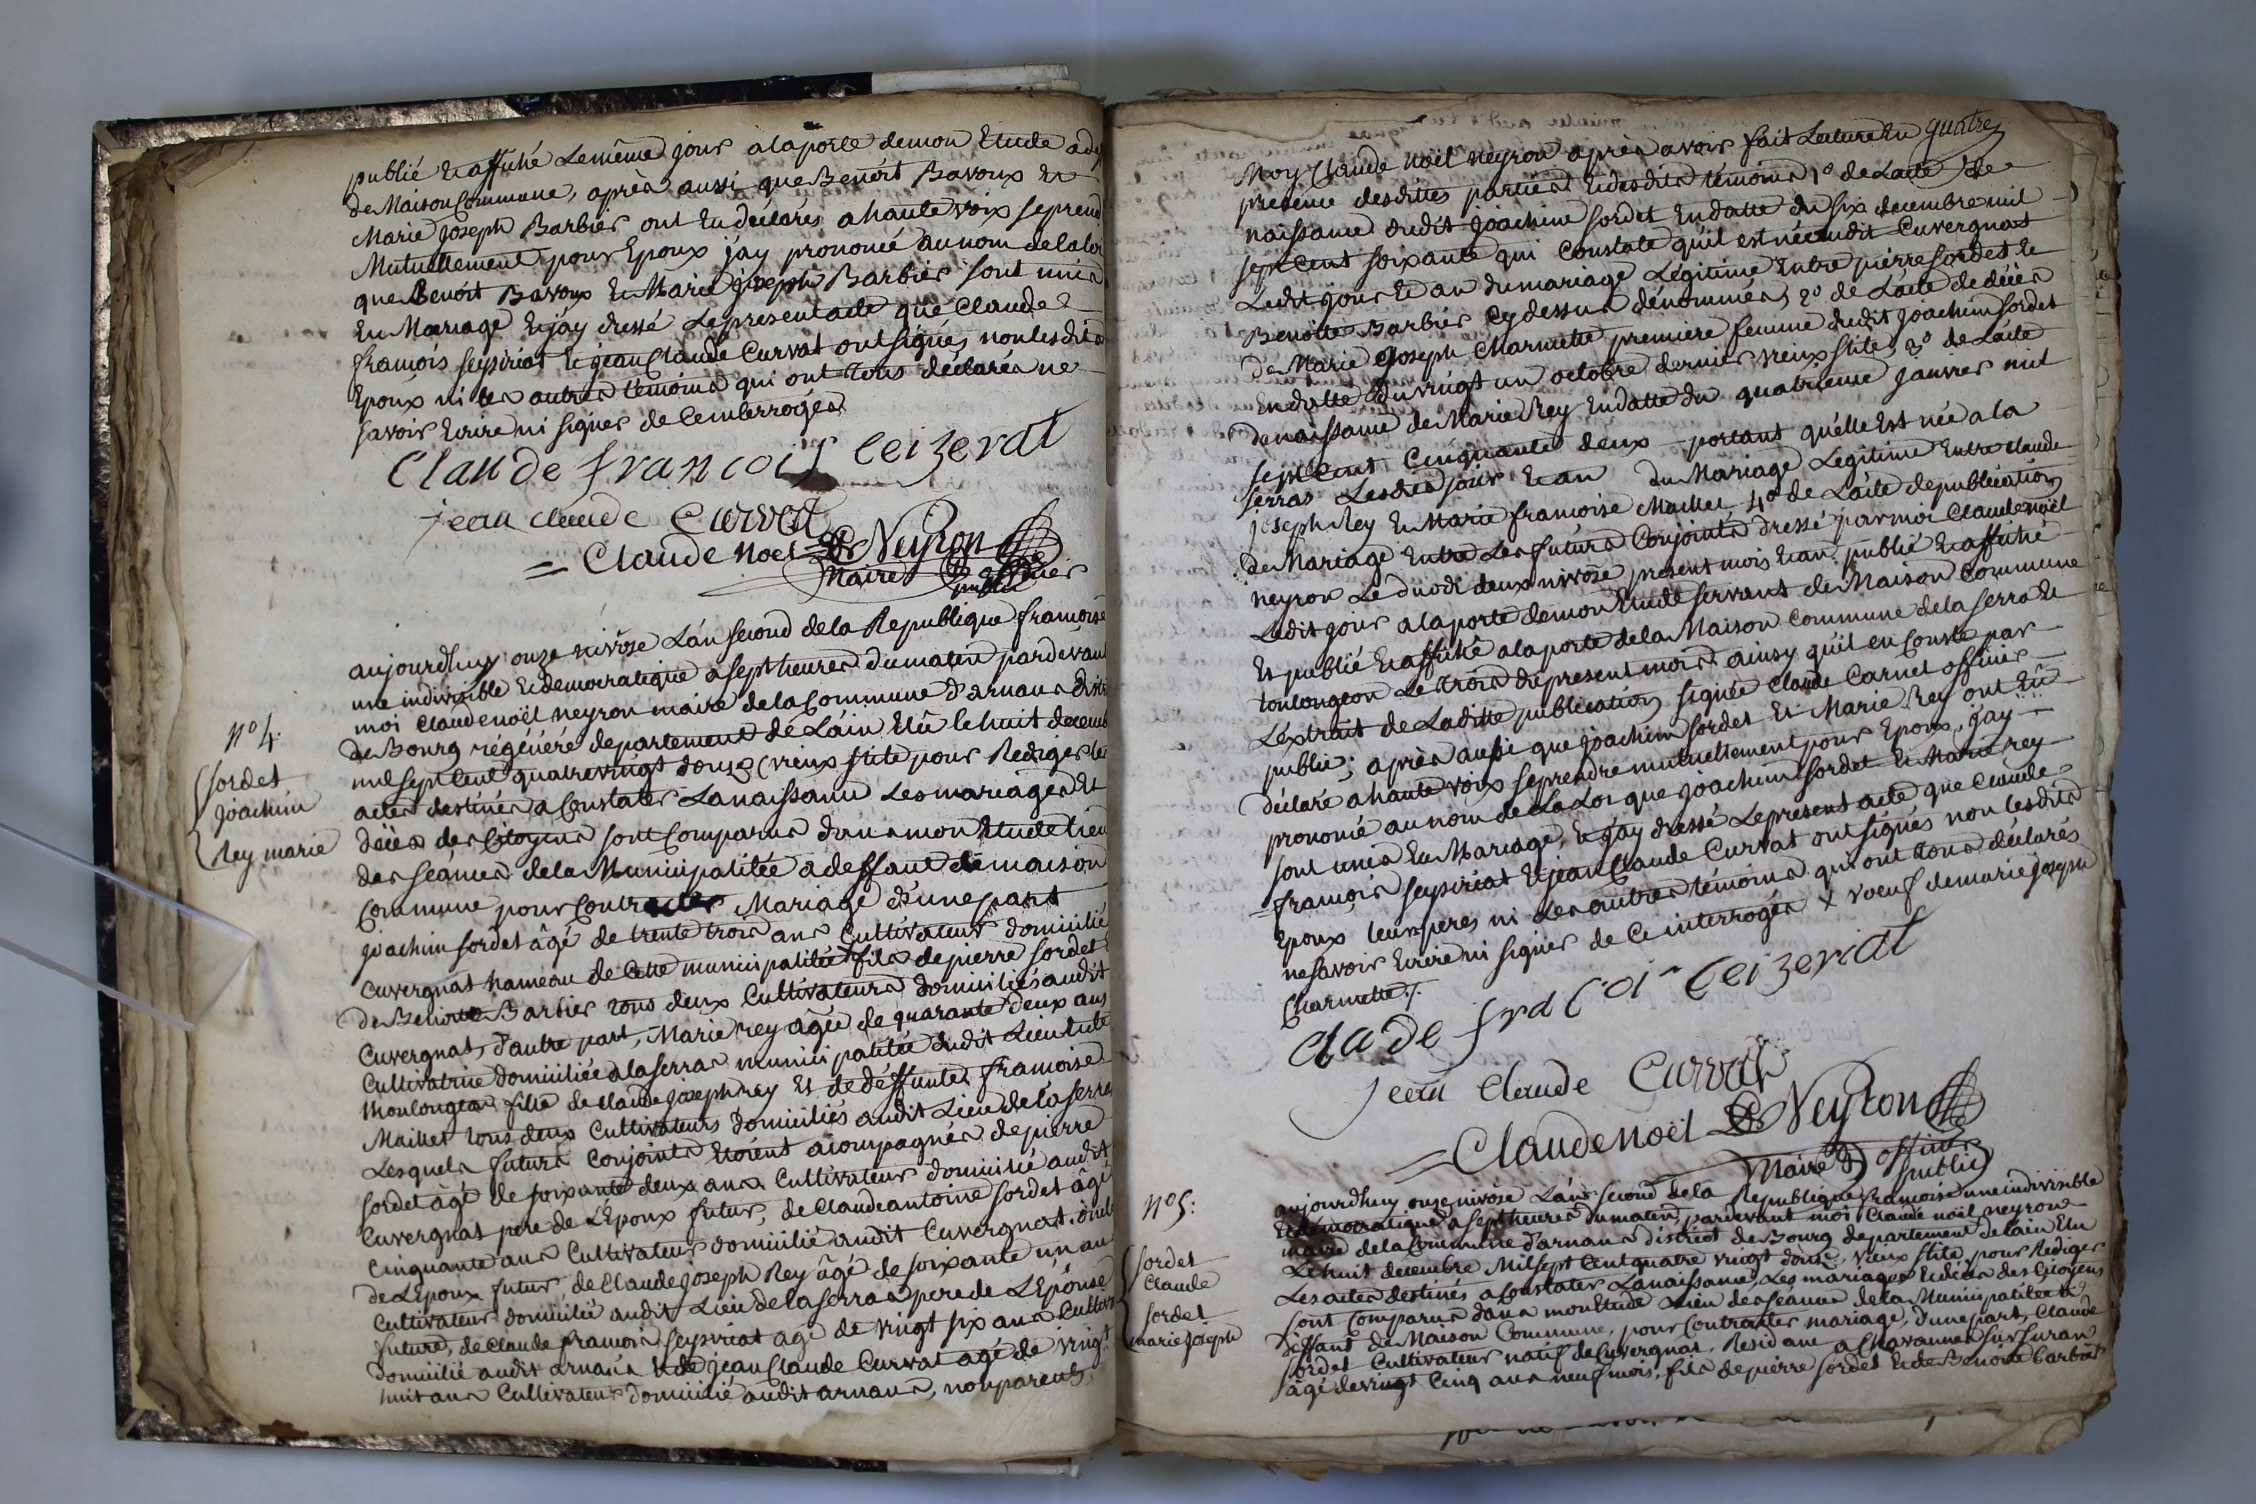 publié Et affiché Le même jour a la porte de mon Etude
de Maison Commune, après aussi que Benoit Bavoux Et
Marie Joseph Barbier ont Eu déclarés a haute voix se prend
Mutuellement pour Epoux j'ay prononcé au nom de la loi
que Benoit Bavoux Et Marie Joseph Barbier sont unis
En Mariage Et j'ay dressé Le present acte que Claude
françois seysiriat Et jean Claude Curvat ont signés non les dits
Epoux ni les autres témoins qui ont tous déclarés ne
savoir Ecrire ni signer de Ce interrogés
Claude francois ceizeriat
jean claude curvat
= Claude Noel Neyron
Maire officier
public
aujourdhuy onze nivôse L'an second de la Republique françoise
une indivisible Et democratique a sept heures du matin pardevant
moi Claude noël neyron maire de la Commune d'arnans
N° 4.
de Bourg régénéré departement de L'ain Elû le huit decemb
sordet
mil sept Cent quatre vingt douze (vieux stile pour Rediger les
joachim
actes destinés a Constater La naissance Les mariages Et
Rey marie
décès des Citoyens sont Comparus dans mon Etude lieu
des séances de la Municipalitée a deffaut de maison
Commune pour Contracter Mariage d'une part
joachim sordet âgé de trente trois ans Cultivateur domicilié
Cuvergnat hameau de Cette municipalitée fils de pierre sordet
de Benoite Barbier tous deux Cultivateurs domiciliés audit
Cuvergnat, d'autre part, Marie rey âgée de quarante deux ans
Cultivatrice domiciliée a la serras municipalitée dudit Lieu
Moulongeon fille de Claude joseph rey Et de déffunte françoise
Maillet tous deux Cultivateurs domiciliés audit Lieu de la serra
Lesquels futurs Conjoints Etoient acompagnés de pierre
sordet âgé de soixante deux ans Cultivateur domicilié audit
Cuvergnat pere de L'Epoux futur, de Claude antoine sordet âgé
Cinquante ans Cultivateur domicilié audit Cuvergnat, oncle
de L'Epoux futur, de Claude joseph Rey âgé de soixante un an
Cultivateur domicilié audit Lieu de la serras pere de L'Epouse
future, de Claude françois seysiriat agé de vingt six ans Cultiv
domicilié audit arnans Et de jean Claude Curvat agé de vingt
huit ans Cultivateur domicilié audit arnans, non parents,
quatre
Moy Claude noël neyron après avoir fait Lecture En
presence desdittes parties Et desdits témoins 1° de L'acte de
naissance dudit joachim sordet En datte du six decembre mil
sept Cent soixante qui Constate qu'il est né audit Cuvergnat
Ledit jour Et an du mariage Légitime Entre pierre sordet Et
Benoitte Barbier Cy dessus dénommés, 2° de L'acte de décès
de Marie Joseph Charmette premiere femme dudit joachim sordet
En datte du vingt un octobre dernier vieux stile, 3° de L'acte
de naissance de Marie Rey En datte du quatrieme janvier mil
sept Cent Cinquante deux portant qu'elle Est née a la
serras Lesdits jour Et an du Mariage Legitime Entre Claude
joseph Rey Et Marie françoise Maillet, 4° de L'acte de publication
de Mariage Entre Les futurs Conjoints dressé par moi Claude noël
neyron Le duodi deux nivôse present mois Et an publié Et affiché
Ledit jour a la porte de mon Etude servant de Maison Commune
Et publié Et affiché a la porte de la Maison Commune de la serra Et
toulongeon Le trois du present mois ainsy qu'il en Conste par
L'extrait de Laditte publication signée Claude Carnet officier
public; après aussi que joachim sordet Et Marie Rey ont Eû
déclaré a haute voix se prendre mutuellement pour Epoux, j'ay
prononcé au nom de La Loi que joachim sordet Et Marie rey
sont unis En Mariage, Et j'ay dressé Le present acte que Claude
françois seysiriat Et jean Claude Curvat ont signés non lesdits
Epoux leurs peres ni Les autres témoins qui ont tous déclarés
ne savoir Ecrire ni signer de Ce interrogés x voeuf de marie joseph
Charmette./.
clade fracoi ceizeriat
jean claude curvat
= Claude Noël Neyron
Maire officier
public
N° 5:
aujourdhuy onze nivôse L'an second de la Republique françoise une indivisible
Et democratique a sept heures du matin, pardevant moi Claude noël neyron
maire de la Commune d'arnans district de Bourg departement de Lain Elu
sordet
Le huit decembre Mil sept Cent quatre vingt douze, vieux stile pour Rediger
Claude
Les actes destinés a Constater La naissance, Les mariages Et décès des Citoyens
sordet
sont Comparus dans mon Etude Lieu des séances de la Municipalitée a
marie joseph
Deffaut de Maison Commune, pour Contracter mariage, d'une part, Claude
sordet Cultivateur natif de Cuvergnat, Residant a Chavannes sur suran
âgé de vingt Cinq ans neuf mois, fils de pierre sordet Et de Benoite Barbier